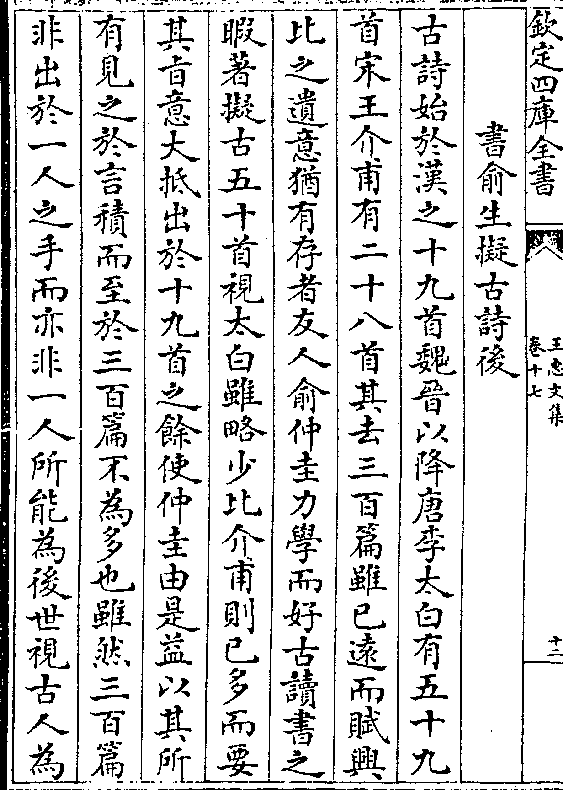 欽定四庫全書
王忠文集
卷十七
十二
書俞生擬古詩後
古詩始於漢之十九首魏晉以降唐李太白有五十九
首宋王介甫有二十八首其去三百篇雖已遠而賦興
比之遺意猶有存者友人俞仲圭力學而好古讀書之
暇著擬古五十首視太白雖略少比介甫則已多而要
其旨意大抵出於十九首之餘使仲圭由是益以其所
有見之於言積而至於三百篇不為多也雖然三百篇
非出於一人之手而亦非一人所能為後世視古人為